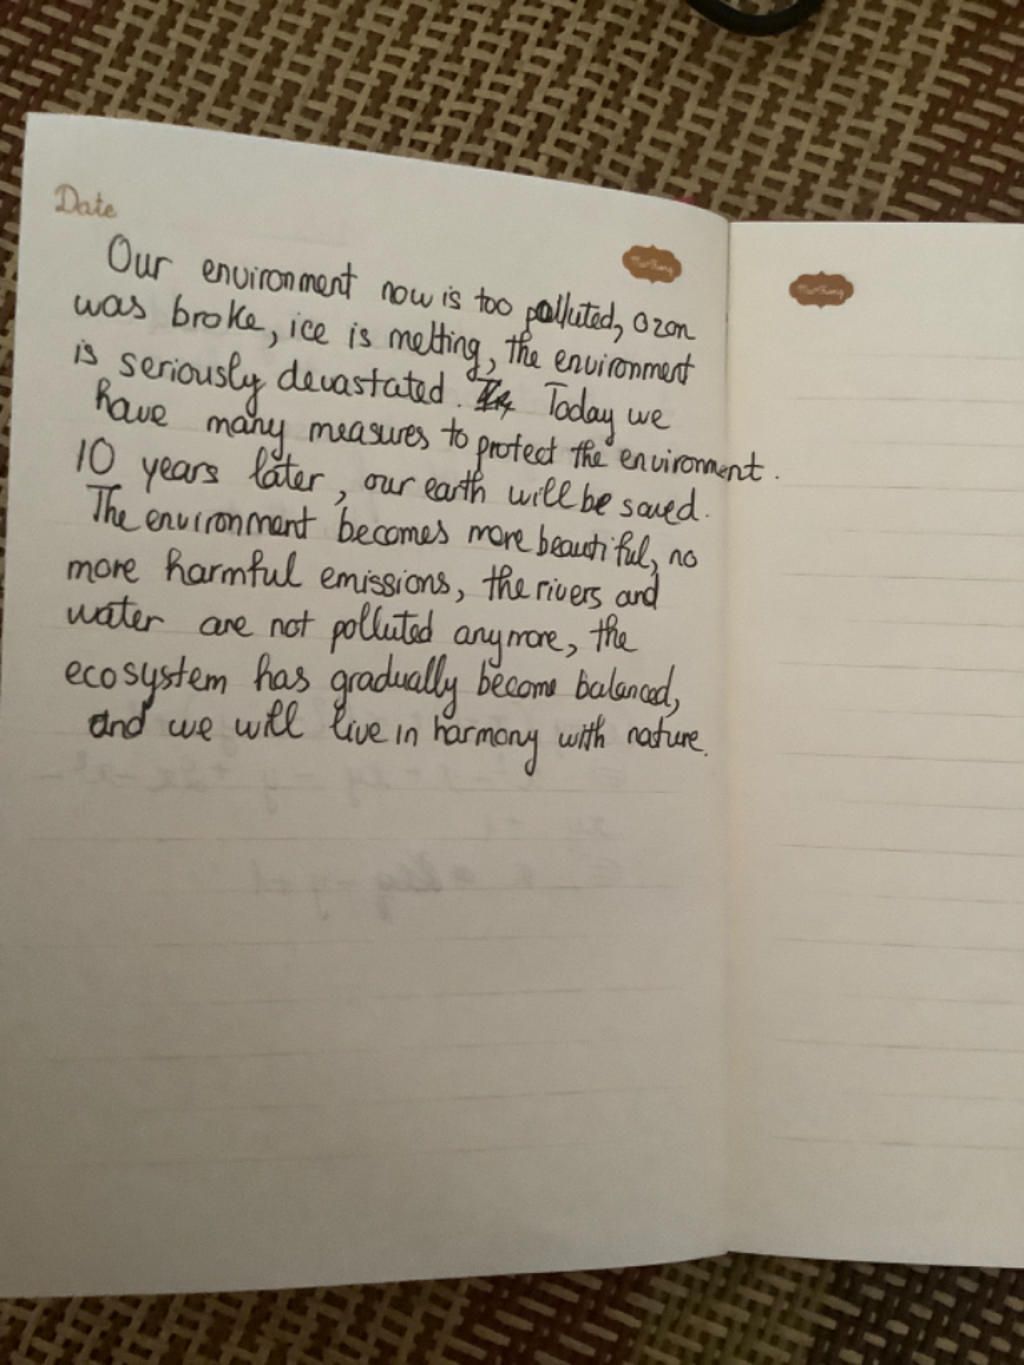 Date
Our environment now is too polluted, ozon
was broke, ice is melting, the environment
is seriously devastated. Today we
have many measures to protect the environment.
10 years later, our earth will be saved.
The environment becomes more beautiful, no
more harmful emissions, the rivers and
water are not polluted anymore, the
ecosystem has gradually become balanced,
and we will live in harmony with nature.